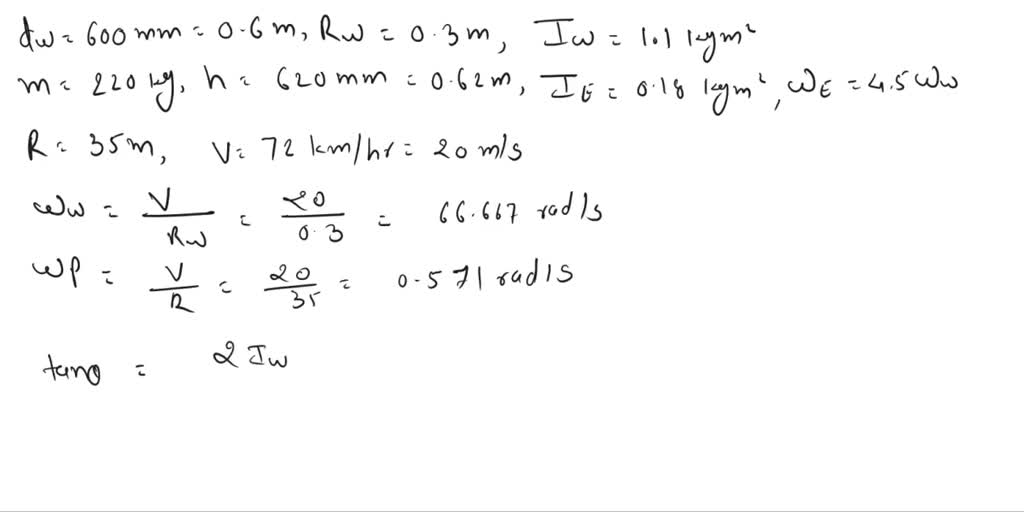 dw = 600 mm = 0.6 m, Rw = 0.3 m, Iw = 1.1 kgm²
m = 220 kg, h = 620 mm = 0.62 m, IE = 0.18 kgm², ωE = 4.5 ωw
R = 35 m, V = 72 km/hr = 20 m/s
ωw = V/Rw = 20/0.3 = 66.667 rad/s
ωP = V/R = 20/35 = 0.571 rad/s
tanθ = 2 Iw